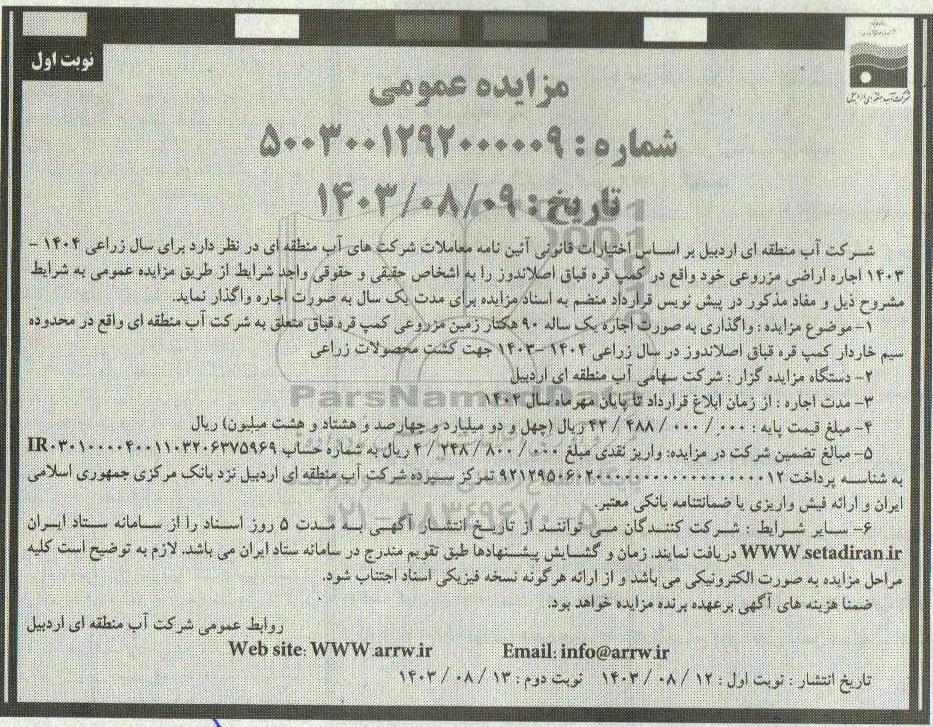 نوبت اول
شرکت آب منطقه ای اردبیل
مزایده عمومی
شماره : ۵۰۰۳۰۰۱۲۹۲۰۰۰۰۰۹
تاریخ : ۱۴۰۳/۰۸/۰۹
شرکت آب منطقه ای اردبیل بر اساس اختیارات قانونی آئین نامه معاملات شرکت های آب منطقه ای در نظر دارد برای سال زراعی ۱۴۰۴ -
۱۴۰۳ اجاره اراضی مزروعی خود واقع در کمپ قره قباق اصلاندوز را به اشخاص حقیقی و حقوقی واجد شرایط از طریق مزایده عمومی به شرایط
مشروح ذیل و مفاد مذکور در پیش نویس قرارداد منضم به اسناد مزایده برای مدت یک سال به صورت اجاره واگذار نماید.
۱- موضوع مزایده : واگذاری به صورت اجاره یک ساله ۹۰ هکتار زمین مزروعی کمپ قره قباق متعلق به شرکت آب منطقه ای واقع در محدوده
سیم خاردار کمپ قره قباق اصلاندوز در سال زراعی ۱۴۰۴ -۱۴۰۳ جهت کشت محصولات زراعی
۲- دستگاه مزایده گزار : شرکت سهامی آب منطقه ای اردبیل
۳- مدت اجاره : از زمان ابلاغ قرارداد تا پایان مهرماه سال ۱۴۰۴
۴- مبلغ قیمت پایه : ۴۲/۴۸۸/۰۰۰/۰۰۰ ریال (چهل و دو میلیارد و چهارصد و هشتاد و هشت میلیون) ریال
۵- مبالغ تضمین شرکت در مزایده: واریز نقدی مبلغ ۲/۲۴۸/۸۰۰/۰۰۰ ریال به شماره حساب IR۰۳۰۱۰۰۰۰۴۰۰۱۱۰۳۲۰۶۳۷۵۹۶۹
به شناسه پرداخت ۹۲۱۲۹۵۰۶۰۲۰۰۰۰۰۰۰۰۰۰۰۰۰۰۰۰۰۱۲ تمرکز سپرده شرکت آب منطقه ای اردبیل نزد بانک مرکزی جمهوری اسلامی
ایران و ارائه فیش واریزی یا ضمانتنامه بانکی معتبر.
۶- سایر شرایط : شرکت کنندگان می توانند از تاریخ انتشار آگهی به مدت ۵ روز اسناد را از سامانه ستاد ایران
WWW.setadiran.ir دریافت نمایند. زمان و گشایش پیشنهادها طبق تقویم مندرج در سامانه ستاد ایران می باشد. لازم به توضیح است کلیه
مراحل مزایده به صورت الکترونیکی می باشد و از ارائه هرگونه نسخه فیزیکی اسناد اجتناب شود.
ضمنا هزینه های آگهی برعهده برنده مزایده خواهد بود.
روابط عمومی شرکت آب منطقه ای اردبیل
Web site: WWW.arrw.ir Email: info@arrw.ir
تاریخ انتشار : نوبت اول : ۱۲ / ۰۸ / ۱۴۰۳ نوبت دوم : ۱۳ / ۰۸ / ۱۴۰۳
ParsNamadData
۰۲۱-۸۸۳۴۹۶۷۰-۵